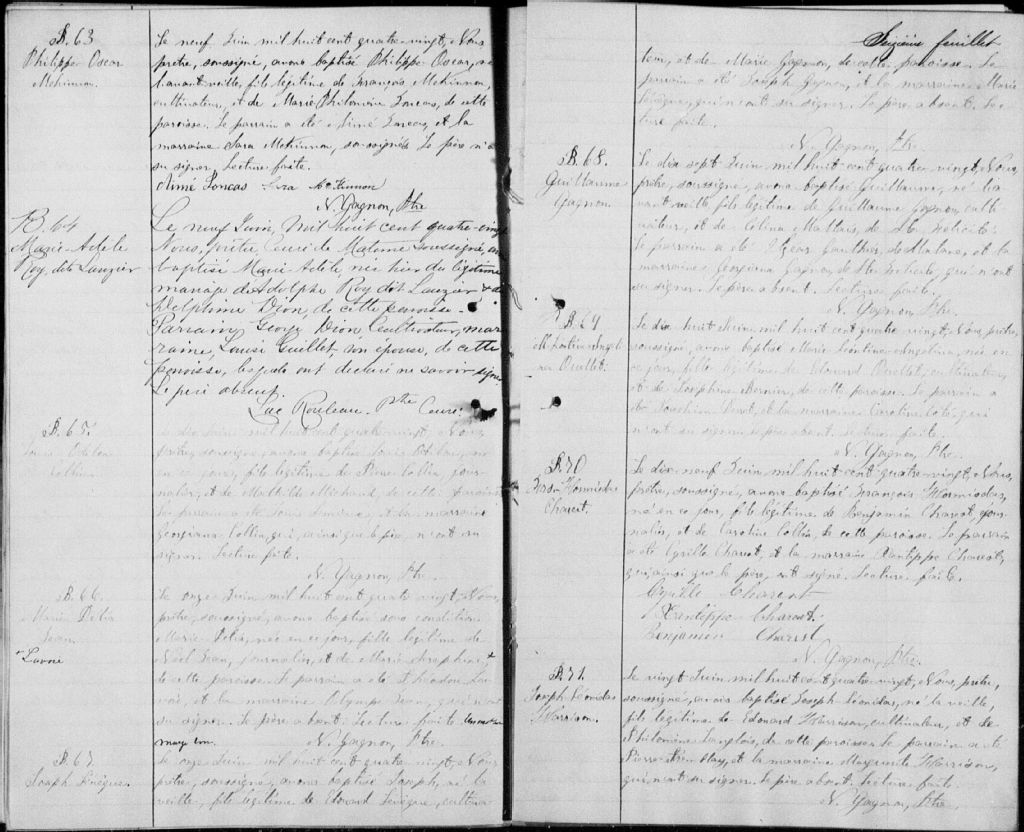 B. 63
Philippe Oscar
McKinnon.
Le neuf Juin mil huit cent quatre-vingt, Nous
prêtre, soussigné, avons baptisé Philippe Oscar, né
l'avant-veille, fils légitime de François McKinnon,
cultivateur, et de Marie Philomène Loncas, de cette
paroisse. Le parrain a été Aimé Loncas, et la
marraine Sara McKinnon, soussignés. Le père n'a
su signer. Lecture faite.
Aimé Loncas Sara McKinnon
N. Gagnon, Ptre
B. 64
Marie-Adèle
Roy, dit Lauzier
Le neuf Juin, mil huit cent quatre-vingt
Nous, prêtre Curé de Matane soussigné, avons
baptisé Marie Adèle, née hier du légitime
mariage de Adolphe Roy dit Lauzier & de
Delphine Dion, de cette paroisse.
Parrain, George Dion Cultivateur, mar
raine, Louise Guillet son épouse, de cette
paroisse, lesquels ont déclaré ne savoir signer
Le père absent.
Luc Rouleau Ptre Curé.
B. 65.
Collin
Le dix Juin mil huit cent quatre-vingt, Nous
prêtre, soussigné, avons baptisé Louis
en ce jour, fils légitime de Collin, jour
nalier, et de Mathilde Michaud, de cette paroisse
Le parrain a été et la marraine
Georgiana Collin, qui, ainsi que le père, n'ont su
signer. Lecture faite.
N. Gagnon, Ptre.
B. 66.
Marie Délia
Jean
+ Lavoie
Le onze Juin mil huit cent quatre-vingt, Nous,
prêtre, soussigné, avons baptisé sous condition
Marie Délia, née en ce jour, fille légitime de
Noël Jean, journalier, et de Marie Séraphine +
de cette paroisse. Le parrain a été Théodore La
voie, et la marraine Olympe Jean, qui n'ont
su signer. Le père absent. Lecture faite. Un mot en
marge bon. N. Gagnon, Ptre.
B. 67.
Joseph Lévêque.
Le onze Juin mil huit cent quatre-vingt, Nous
prêtre, soussigné, avons baptisé Joseph, né la
veille, fils légitime de Edouard Lévêque, cultiva
Seizième feuillet
teur, et de Marie Gagnon, de cette paroisse. Le
parrain a été Joseph Gagnon, et la marraine Marie
Lévêque, qui n'ont su signer. Le père absent. Lec
ture faite.
N. Gagnon, Ptre
B. 68.
Guillaume
Gagnon.
Le dix sept Juin mil huit cent quatre-vingt, Nous,
prêtre, soussigné, avons baptisé Guillaume, né l'a
vant veille, fils légitime de Guillaume Gagnon, culti
vateur, et de Célina Maltais, de Ste Félicité.
Le parrain a été Elzéar Gauthier, de Matane, et la
marraine Georgiana Gagnon, de Ste Félicité, qui n'ont
su signer. Le père absent. Lecture faite.
N. Gagnon, Ptre.
B. 69
M. Léontine Angéli
na Ouellet.
Le dix huit Juin mil huit cent quatre-vingt, Nous, prêtre,
soussigné, avons baptisé Marie Léontine Angélina, née en
ce jour, fille légitime de Edouard Ouellet, cultivateur,
et de Joséphine Bernier, de cette paroisse. Le parrain a
été Joachim et la marraine Caroline Côté, qui
n'ont su signer. Le père absent. Lecture faite.
N. Gagnon, Ptre.
B. 70
Frs Hormisdas
Charest.
Le dix neuf Juin mil huit cent quatre-vingt, Nous,
prêtre, soussigné, avons baptisé François Hormisdas,
né en ce jour, fils légitime de Benjamin Charest, jour
nalier, et de Caroline Collin, de cette paroisse. Le parrain
a été Cyrille Charest, et la marraine Xantippe Charest,
qui, ainsi que le père, ont signé. Lecture faite.
Cyrille Charest
Xantippe Charest.
Benjamin Charest
N. Gagnon, Ptre.
B. 71.
Joseph Léonidas
Harrisson.
Le vingt Juin mil huit cent quatre-vingt, Nous, prêtre,
soussigné, avons baptisé Joseph Léonidas, né la veille,
fils légitime de Edouard Harrisson, cultivateur, et de
Philomène Langlois, de cette paroisse. Le parrain a été
Pierre Tremblay, et la marraine Marguerite Harrisson,
qui n'ont su signer. Le père absent. Lecture faite.
N. Gagnon, Ptre.